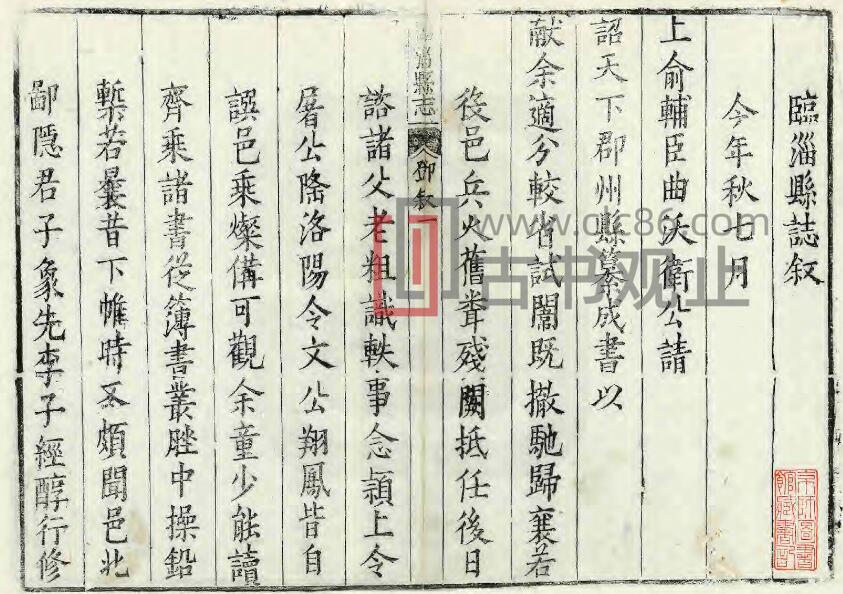 臨淄縣誌叙
今年秋七月
上俞輔臣曲沃衛公請
詔天下郡州縣纂成書以
献余適分較省試闈既撤馳歸襄若
役邑兵火舊耷殘闕抵任後日
淄縣志
御叙一
諮諸父老粗識軼事念潁上令
屠公隆洛陽令文公翔鳳皆自
譔邑乘燦俻可觀余童少能讀
齊乘諸書從簿書叢脞中操鉛
槧若曩昔下帷時丕頗聞邑北
鄙隱君子象先李子經醇行修
www.ox86.com
古书观止